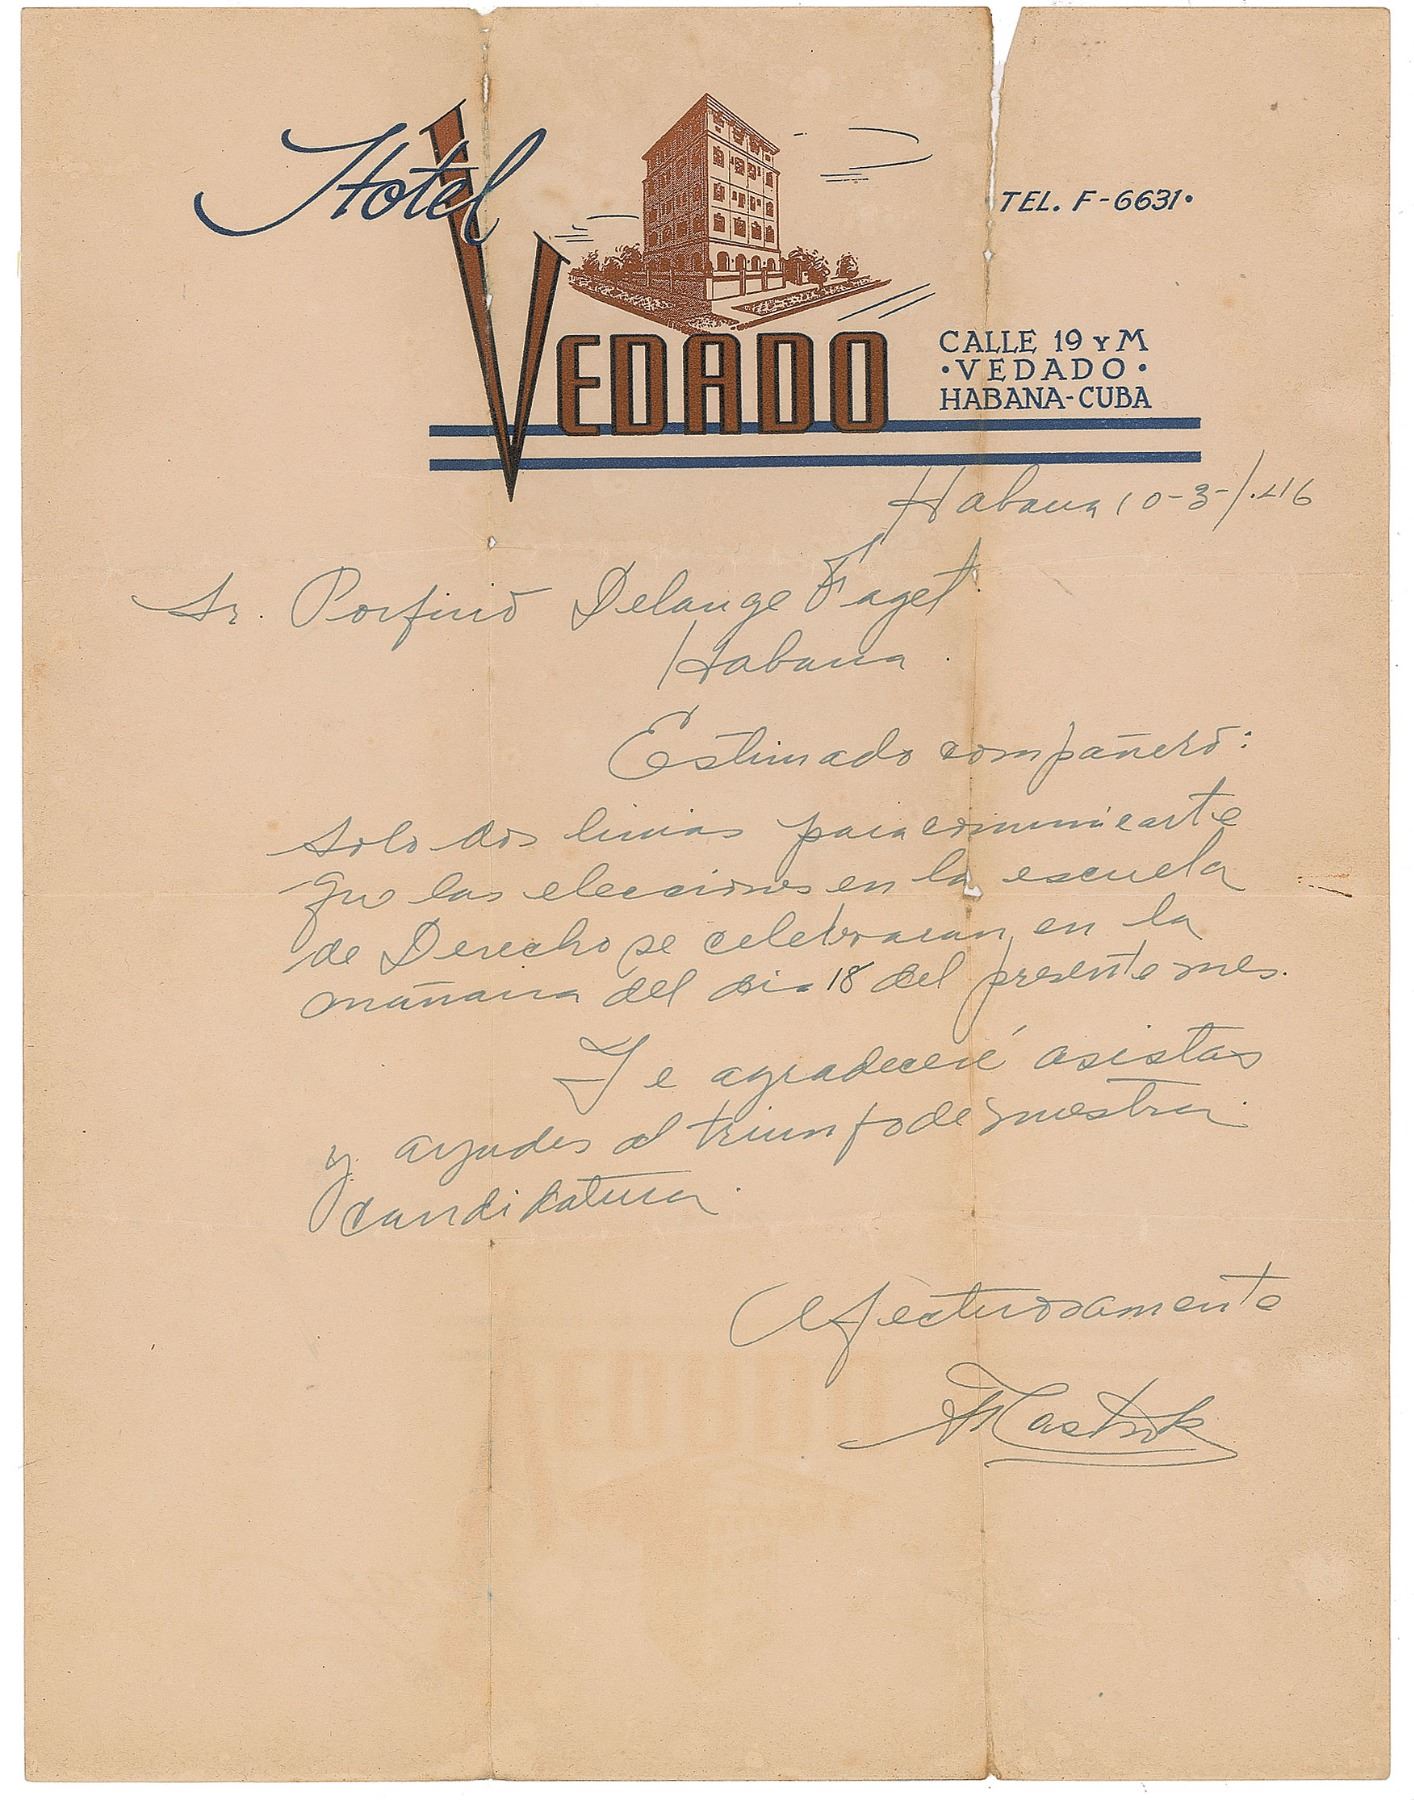 Hotel
VEDADO
TEL. F-6631.
CALLE 19 Y M
·VEDADO·
HABANA-CUBA
Habana 10-3-/.46
Sr. Porfirio Delange Faget
Habana.
Estimado compañero:
Solo dos lineas para comunicarte
que las elecciones en la escuela
de Derecho se celebraran en la
mañana del dia 18 del presente mes.
Te agradeceré asistas
y ayudes al triunfo de nuestra
candidatura.
Afectuosamente